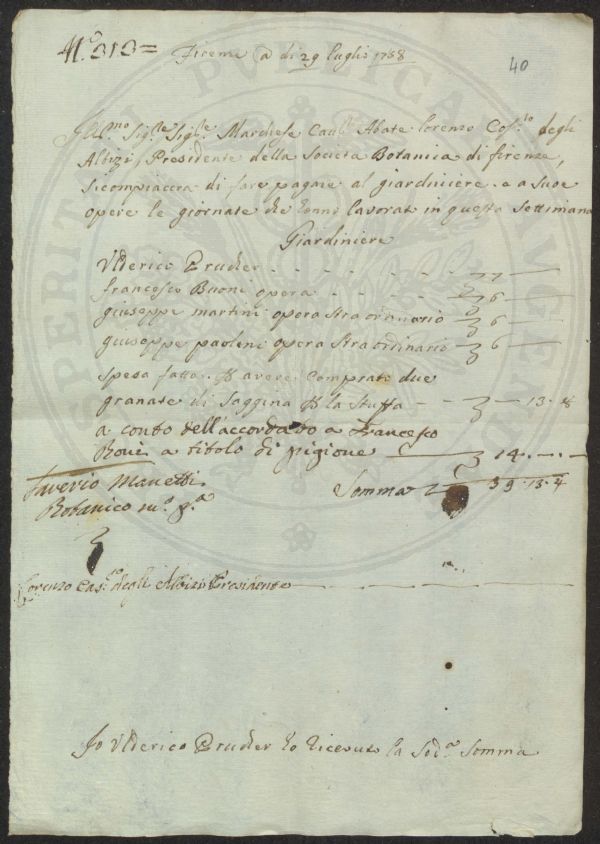 N.º 212=
Firenze a di 29 luglio 1758
40
Ill.mo Sig.re Sig.re Marchese Cav.re Abate Lorenzo Cos.to degli
Albizi Presidente della Società Botanica di firenze,
Si compiacerà di fare pagare al giardiniere e a sue
opere le giornate che hanno lavorat in questa Settimana
Giardiniere
Vlderico Prucher
francesco Buoni opera 6
giuseppe martini opera straordinario 6
giuseppe paoleni opera straordinario 6
spesa fatta avere Comprato due
granate di Saggina la stuffa 13.4
a conto dell'accordato a francesco
a titolo di pigione 14
Saverio Manetti Somma 39.13.4
Botanico
Lorenzo Cos.to degli Albizi Presidente
Io Vlderico Prucher ho ricevuto la Sod.a Somma
SPERITATI PVBLICAE AVGENDAE